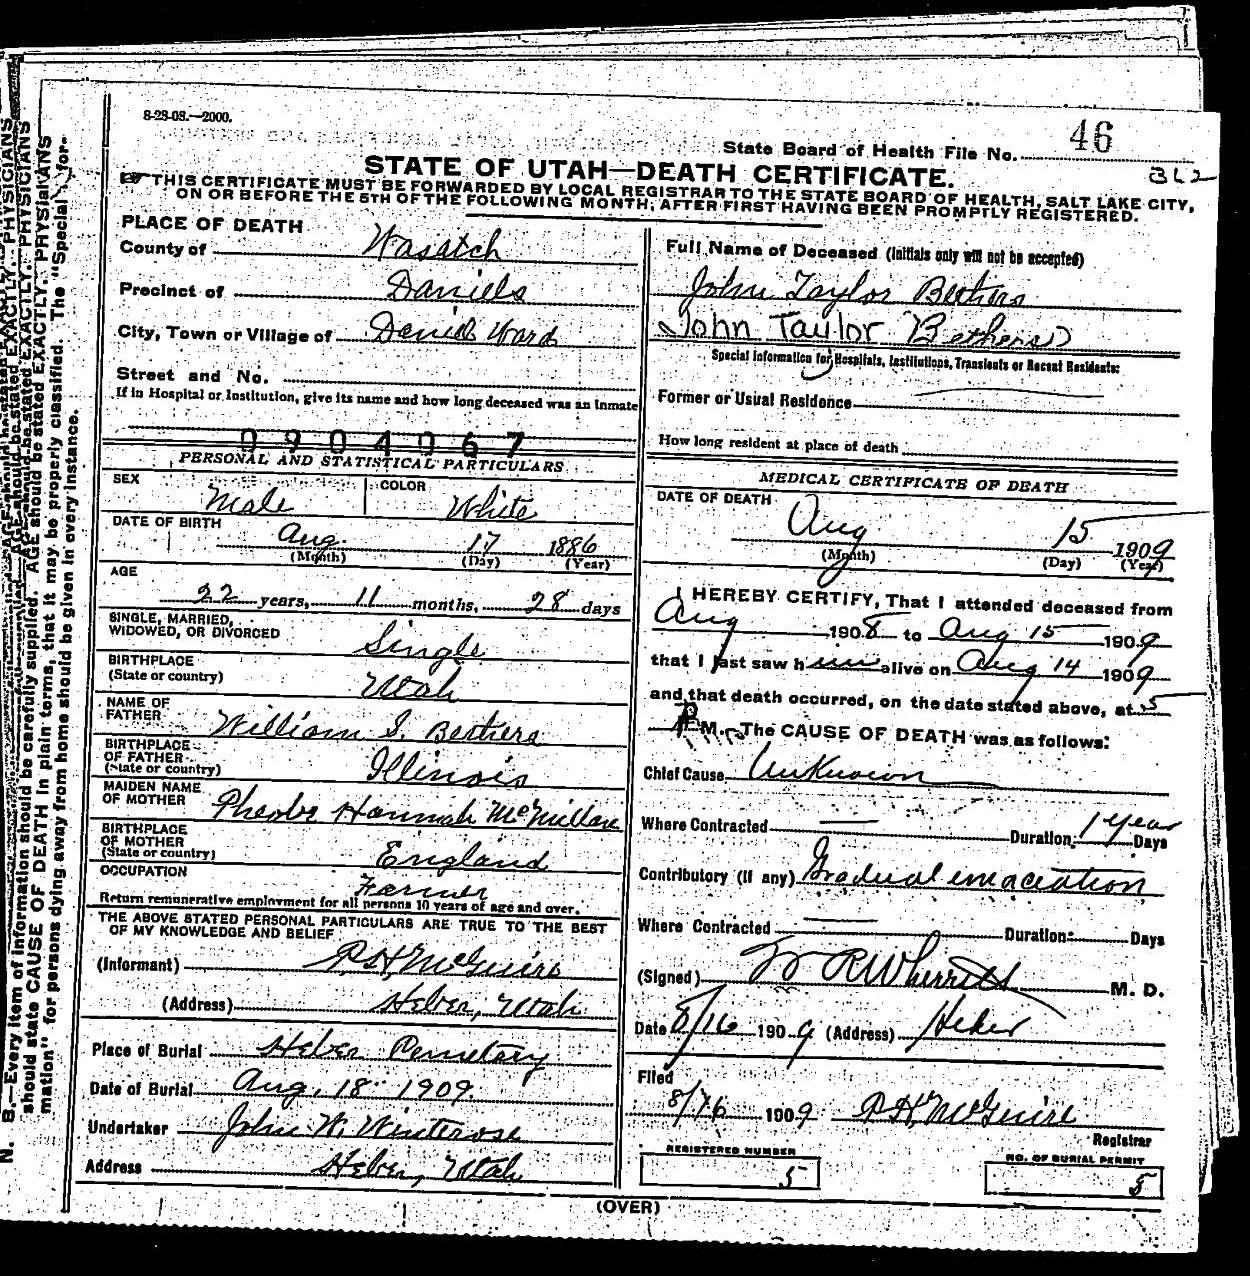 8-28-08.—2000.
State Board of Health File No. 46
STATE OF UTAH—DEATH CERTIFICATE.
THIS CERTIFICATE MUST BE FORWARDED BY LOCAL REGISTRAR TO THE STATE BOARD OF HEALTH, SALT LAKE CITY,
ON OR BEFORE THE 5TH OF THE FOLLOWING MONTH, AFTER FIRST HAVING BEEN PROMPTLY REGISTERED.
PLACE OF DEATH
County of Wasatch
Precinct of Daniels
City, Town or Village of Daniels Ward
Street and No.
If in Hospital or Institution, give its name and how long deceased was an inmate
0904067
PERSONAL AND STATISTICAL PARTICULARS
SEX Male COLOR White
DATE OF BIRTH Aug. 17 1886
(Month) (Day) (Year)
AGE
22 years, 11 months, 28 days
SINGLE, MARRIED,
WIDOWED, OR DIVORCED Single
BIRTHPLACE
(State or country) Utah
NAME OF
FATHER William S. Bethers
BIRTHPLACE
OF FATHER
(State or country) Illinois
MAIDEN NAME
OF MOTHER Pheobe Hannah McMillan
BIRTHPLACE
OF MOTHER
(State or country) England
OCCUPATION Farmer
Return remunerative employment for all persons 10 years of age and over.
THE ABOVE STATED PERSONAL PARTICULARS ARE TRUE TO THE BEST
OF MY KNOWLEDGE AND BELIEF
(Informant) R. H. McGuire
(Address) Heber, Utah
Place of Burial Heber Cemetary
Date of Burial Aug, 18 1909.
Undertaker John W. Winterose
Address Heber, Utah
Full Name of Deceased (Initials only will not be accepted)
John Taylor Bethers
John Taylor Bethers
Special Information for Hospitals, Institutions, Transients or Recent Residents:
Former or Usual Residence
How long resident at place of death
MEDICAL CERTIFICATE OF DEATH
DATE OF DEATH
Aug 15 1909
(Month) (Day) (Year)
I HEREBY CERTIFY, That I attended deceased from
Aug 1908 to Aug 15 1909
that I last saw him alive on Aug 14 1909
and that death occurred, on the date stated above, at 5
P M. The CAUSE OF DEATH was as follows:
Chief Cause Unknown
Where Contracted Duration: 1 Year Days
Contributory (if any) Gradual emaciation
Where Contracted Duration: Days
(Signed) W R Wherritt M. D.
Date 8/16 1909 (Address) Heber
Filed
8/16 1909 R. H. McGuire
Registrar
REGISTERED NUMBER
5
NO. OF BURIAL PERMIT
5
(OVER)
N. B.—Every item of information should be carefully supplied. AGE should be stated EXACTLY. PHYSICIANS
should state CAUSE OF DEATH in plain terms, that it may be properly classified. The "Special Infor-
mation" for persons dying away from home should be given in every instance.